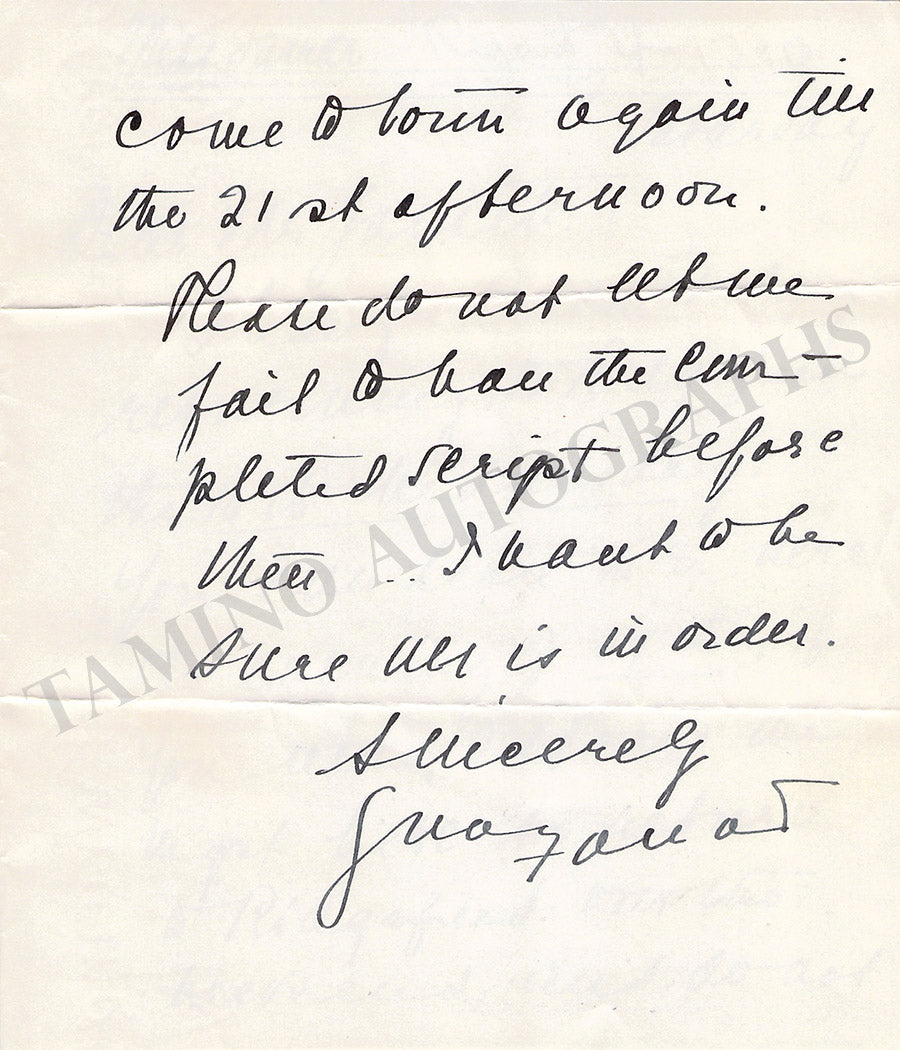 come to town again till
the 21 st afternoon.
Please do not let me
fail to have the com-
pleted script before
then .. I want to be
sure all is in order.
Sincerely
TAMINO AUTOGRAPHS